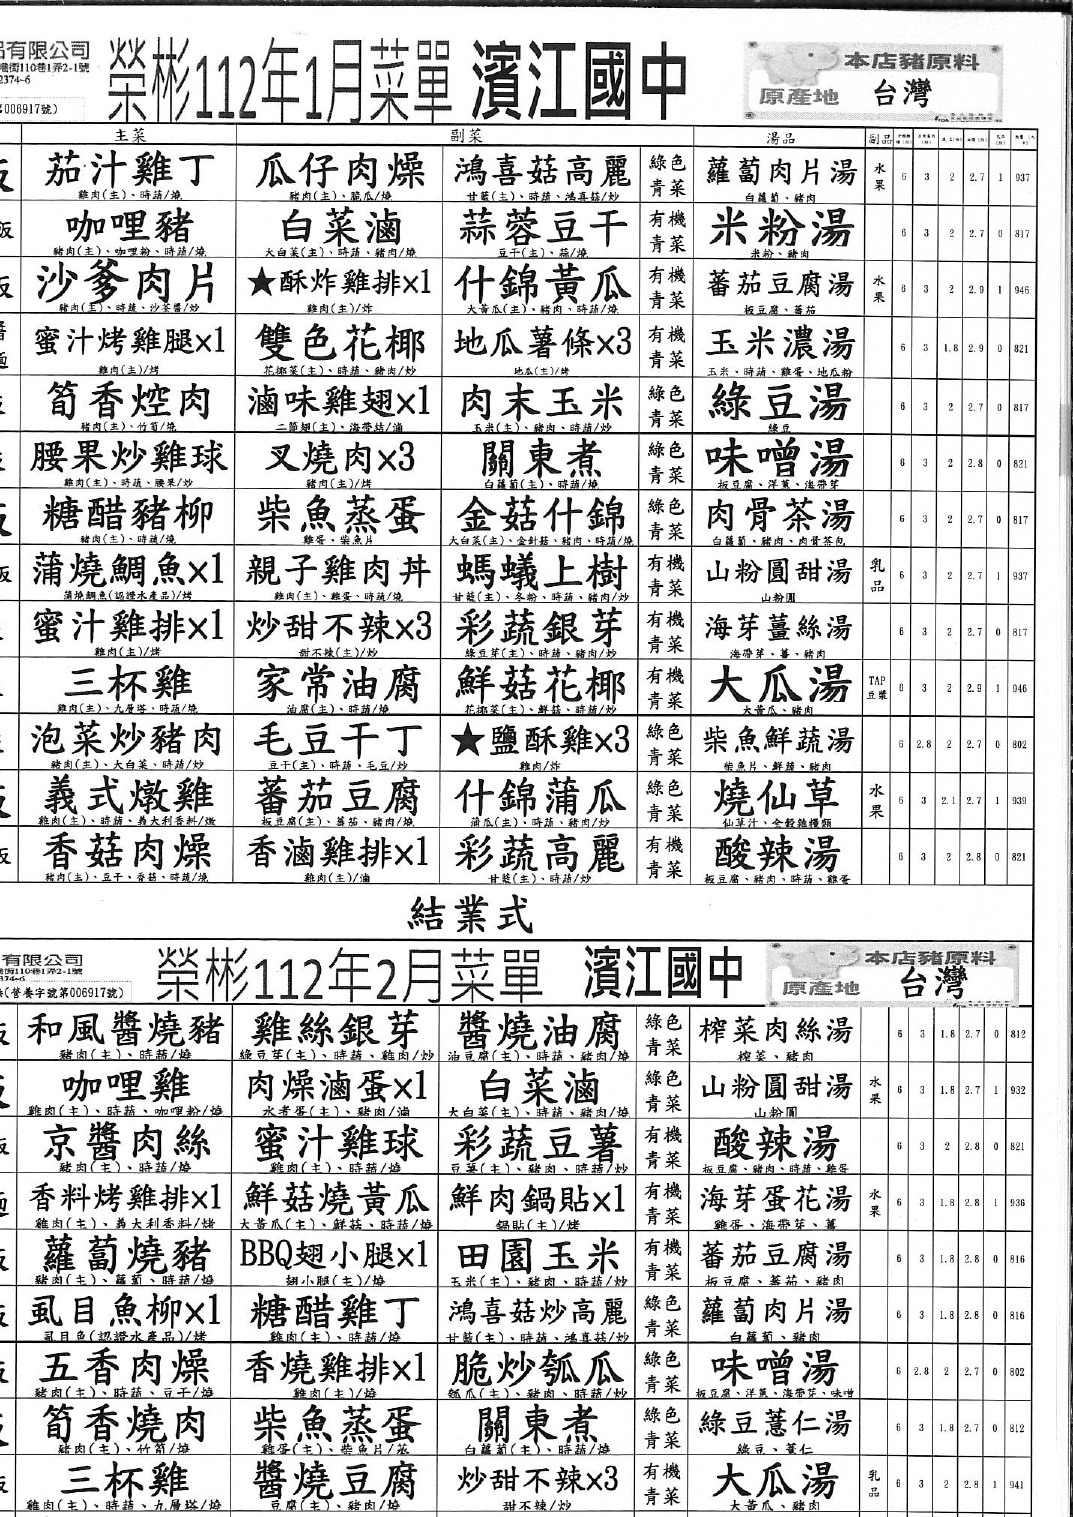 品有限公司
榮彬112年1月菜單 濱江國中
街110巷1弄2-1號
2374-6
006917號)
本店豬原料
原產地 台灣
主菜 副菜 湯品 副品
茄汁雞丁 瓜仔肉燥 鴻喜菇高麗 綠色青菜 蘿蔔肉片湯 水果 6 3 2 2.7 1 937
雞肉(主)、時蔬/燒 豬肉(主)、脆瓜/燒 甘藍(主)、時蔬、鴻喜菇/炒 白蘿蔔、豬肉
飯 咖哩豬 白菜滷 蒜蓉豆干 有機青菜 米粉湯 6 3 2 2.7 0 817
豬肉(主)、咖哩粉、時蔬/燒 大白菜(主)、時蔬、豬肉/燒 豆干(主)、蒜/燒 米粉、豬肉
飯 沙爹肉片 ★酥炸雞排×1 什錦黃瓜 有機青菜 蕃茄豆腐湯 水果 6 3 2 2.9 1 946
豬肉(主)、時蔬、沙茶醬/炒 雞肉(主)/炸 大黃瓜(主)、豬肉、時蔬/燒 板豆腐、蕃茄
蜜汁烤雞腿×1 雙色花椰 地瓜薯條×3 有機青菜 玉米濃湯 6 3 1.8 2.9 0 821
雞肉(主)/烤 花椰菜(主)、時蔬、豬肉/炒 地瓜(主)/烤 玉米、時蔬、雞蛋、地瓜粉
筍香焢肉 滷味雞翅×1 肉末玉米 綠色青菜 綠豆湯 6 3 2 2.7 0 817
豬肉(主)、竹筍/燒 二節翅(主)、海帶結/滷 玉米(主)、豬肉、時蔬/炒 綠豆
腰果炒雞球 叉燒肉×3 關東煮 綠色青菜 味噌湯 6 3 2 2.8 0 821
雞肉(主)、時蔬、腰果/炒 豬肉(主)/烤 白蘿蔔(主)、時蔬/燒 板豆腐、洋蔥、海帶芽
飯 糖醋豬柳 柴魚蒸蛋 金菇什錦 綠色青菜 肉骨茶湯 6 3 2 2.7 0 817
豬肉(主)、時蔬/燒 雞蛋、柴魚片 大白菜(主)、金針菇、豬肉、時蔬/燒 白蘿蔔、豬肉、肉骨茶包
飯 蒲燒鯛魚×1 親子雞肉丼 螞蟻上樹 有機青菜 山粉圓甜湯 乳品 6 3 2 2.7 1 937
蒲燒鯛魚(認證水產品)/烤 雞肉(主)、雞蛋、時蔬/燒 甘藍(主)、冬粉、時蔬、豬肉/炒 山粉圓
蜜汁雞排×1 炒甜不辣×3 彩蔬銀芽 有機青菜 海芽薑絲湯 6 3 2 2.7 0 817
雞肉(主)/烤 甜不辣(主)/炒 綠豆芽(主)、時蔬、豬肉/炒 海帶芽、薑、豬肉
三杯雞 家常油腐 鮮菇花椰 有機青菜 大瓜湯 TAP豆漿 6 3 2 2.9 1 946
雞肉(主)、九層塔、時蔬/燒 油腐(主)、時蔬/燒 花椰菜(主)、鮮菇、時蔬/炒 大黃瓜、豬肉
泡菜炒豬肉 毛豆干丁 ★鹽酥雞×3 綠色青菜 柴魚鮮蔬湯 6 2.8 2 2.7 0 802
豬肉(主)、大白菜、時蔬/炒 豆干(主)、時蔬、毛豆/炒 雞肉/炸 柴魚片、鮮蔬、豬肉
飯 義式燉雞 蕃茄豆腐 什錦蒲瓜 綠色青菜 燒仙草 水果 6 3 2.1 2.7 1 939
雞肉(主)、時蔬、義大利香料/燉 板豆腐(主)、蕃茄、豬肉/燒 蒲瓜(主)、時蔬、豬肉/炒 仙草汁、全穀雜糧類
飯 香菇肉燥 香滷雞排×1 彩蔬高麗 有機青菜 酸辣湯 6 3 2 2.8 0 821
豬肉(主)、豆干、香菇、時蔬/燒 雞肉(主)/滷 甘藍(主)、時蔬/炒 板豆腐、豬肉、時蔬、雞蛋
結業式
有限公司
榮彬112年2月菜單 濱江國中
街110巷1弄2-1號
374-6
(營養字號第006917號)
本店豬原料
原產地 台灣
飯 和風醬燒豬 雞絲銀芽 醬燒油腐 綠色青菜 榨菜肉絲湯 6 3 1.8 2.7 0 812
豬肉(主)、時蔬/燒 綠豆芽(主)、時蔬、雞肉/炒 油豆腐(主)、時蔬、豬肉/燒 榨菜、豬肉
咖哩雞 肉燥滷蛋×1 白菜滷 綠色青菜 山粉圓甜湯 水果 6 3 1.8 2.7 1 932
雞肉(主)、時蔬、咖哩粉/燒 水煮蛋(主)、豬肉/滷 大白菜(主)、時蔬、豬肉/燒 山粉圓
飯 京醬肉絲 蜜汁雞球 彩蔬豆薯 有機青菜 酸辣湯 6 3 2 2.8 0 821
豬肉(主)、時蔬/燒 雞肉(主)、時蔬/燒 豆薯(主)、豬肉、時蔬/炒 板豆腐、豬肉、時蔬、雞蛋
香料烤雞排×1 鮮菇燒黃瓜 鮮肉鍋貼×1 有機青菜 海芽蛋花湯 水果 6 3 1.8 2.8 1 936
雞肉(主)、義大利香料/烤 大黃瓜(主)、鮮菇、時蔬/燒 鍋貼(主)/烤 雞蛋、海帶芽、薑
飯 蘿蔔燒豬 BBQ翅小腿×1 田園玉米 有機青菜 蕃茄豆腐湯 6 3 1.8 2.8 0 816
豬肉(主)、蘿蔔、時蔬/燒 翅小腿(主)/燒 玉米(主)、豬肉、時蔬/炒 板豆腐、蕃茄、豬肉
飯 虱目魚柳×1 糖醋雞丁 鴻喜菇炒高麗 綠色青菜 蘿蔔肉片湯 6 3 1.8 2.8 0 816
虱目魚(認證水產品)/烤 雞肉(主)、時蔬/燒 甘藍(主)、時蔬、鴻喜菇/炒 白蘿蔔、豬肉
飯 五香肉燥 香燒雞排×1 脆炒瓠瓜 綠色青菜 味噌湯 6 2.8 2 2.7 0 802
豬肉(主)、時蔬、豆干/燒 雞肉(主)/燒 瓠瓜(主)、豬肉、時蔬/炒 板豆腐、洋蔥、海帶芽、味噌
筍香燒肉 柴魚蒸蛋 關東煮 綠色青菜 綠豆薏仁湯 6 3 1.8 2.7 0 812
豬肉(主)、竹筍/燒 雞蛋(主)、柴魚片/蒸 白蘿蔔(主)、時蔬/燒 綠豆、薏仁
飯 三杯雞 醬燒豆腐 炒甜不辣×3 有機青菜 大瓜湯 乳品 6 3 2 2.8 1 941
雞肉(主)、時蔬、九層塔/燒 豆腐(主)、豬肉/燒 甜不辣/炒 大黃瓜、豬肉